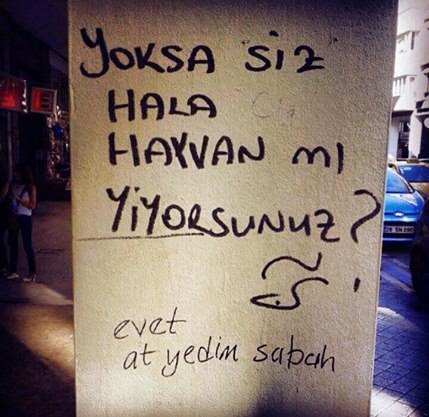 YOKSA SİZ
HALA
HAYVAN MI
YİYORSUNUZ?
evet
at yedim sabah